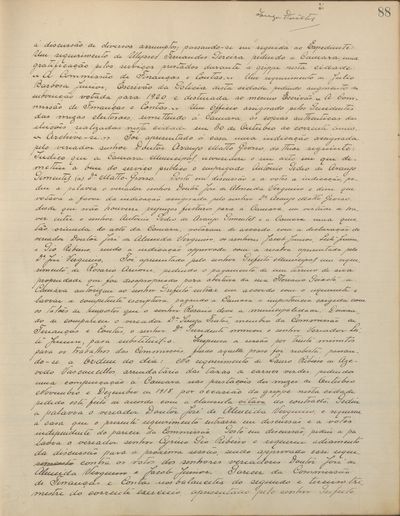 88
a discussão de diversos assumptos, passando-se em seguida ao Expediente:
Um requerimento de Ulysses Fernandes Pereira pedindo a Camara uma
gratificação pelos serviços prestados durante a grippe nesta cidade.
"A Commissão de Finanças e Contas." Um requerimento de Julio
Barbosa Junior, Escrivão da Policia desta cidade pedindo augmento da
subvenção votada para 1920 e destinada ao mesmo Escrivão. "A Com-
missão de Finanças e Contas." Um officio assignado pelos Presidentes
das mezas eleitoraes, remettendo á Camara as copias authenticas das
eleições realizadas nesta cidade em 30 de Outubro do corrente anno.
"Archive-se." Foi apresentado á casa uma indicação assignada
pelo vereador senhor Doutor Araujo Matto Grosso do theor seguinte:
Indico que a Camara Municipal
metteu a bem do serviço publico o empregado Antonio Pedro de Araujo
Pimentel. (a) Dr Matto Grosso. Posta em discussão e a votos a indicação, pe-
diu a palavra o vereador senhor Doutor José de Almeida Vergueiro e disse que
votava a favor da indicação assignada pelo senhor Dr Araujo Matto Grosso
desde que não houvesse prejuizo para a Camara, em virtude de ha-
ver entre o senhor Antonio Pedro de Araujo Pimentel e a Camara uma ques-
tão oriunda do acto da Camara, votaram de accordo com a declaração do
vereador Doutor José de Almeida Vergueiro, os senhores Jacob Junior,
e Pio Ribeiro, sendo a indicação approvada com a resalva apresentada pelo
Dr José Vergueiro. Foi apresentado pelo senhor Prefeito Municipal um reque-
rimento de Rosario
propriedade que foi desapropriada para abertura da rua Floriano Peixoto. A
Camara autorizou ao senhor Prefeito entrar em accordo com o requerente e
lavrar a competente escriptura, pagando a Camara a importancia exigida com
os talões de impostos que o senhor Rosario deve a municipalidade. Deixan-
do de comparecer o vereador Dr membro da Commissão de
Finanças e Contas, o senhor Dr Presidente nomeou o senhor Vereador
Junior, para substituil-o. Suspensa a sessão por trinta minutos
para os trabalhos das Commissões, findo aquelle prazo foi reaberta, passan-
do-se a Ordem do dia: Ao requerimento de Lauro Ribeiro de Aze-
vedo Vasconcellos, arrendatario das taxas a carnes verdes pedindo
uma compensação á Camara nas prestações do mezes de Outubro
Novembro e Dezembro de 1918 por occasião da grippe nesta cidade,
pedido este feito de accordo com a clausula oitava do contracto. Pediu
a palavra o vereador Doutor José de Almeida Vergueiro, e requereu
á casa que o presente requerimento entrasse em discussão e a votos
independente do parecer da Commissão. Posto em discussão, pediu a pa-
lavra o vereador senhor Pio Ribeiro e requereu adiamento
da discussão para a proxima sessão, sendo approvado esse reque-
rimento contra os votos dos senhores vereadores Doutor José de
Almeida Vergueiro e Jacob Junior. Parecer da Commissão
de Finanças e Contas nos balancetes do segundo e terceiro tri-
mestre do corrente exercicio apresentados pelo senhor Prefeito